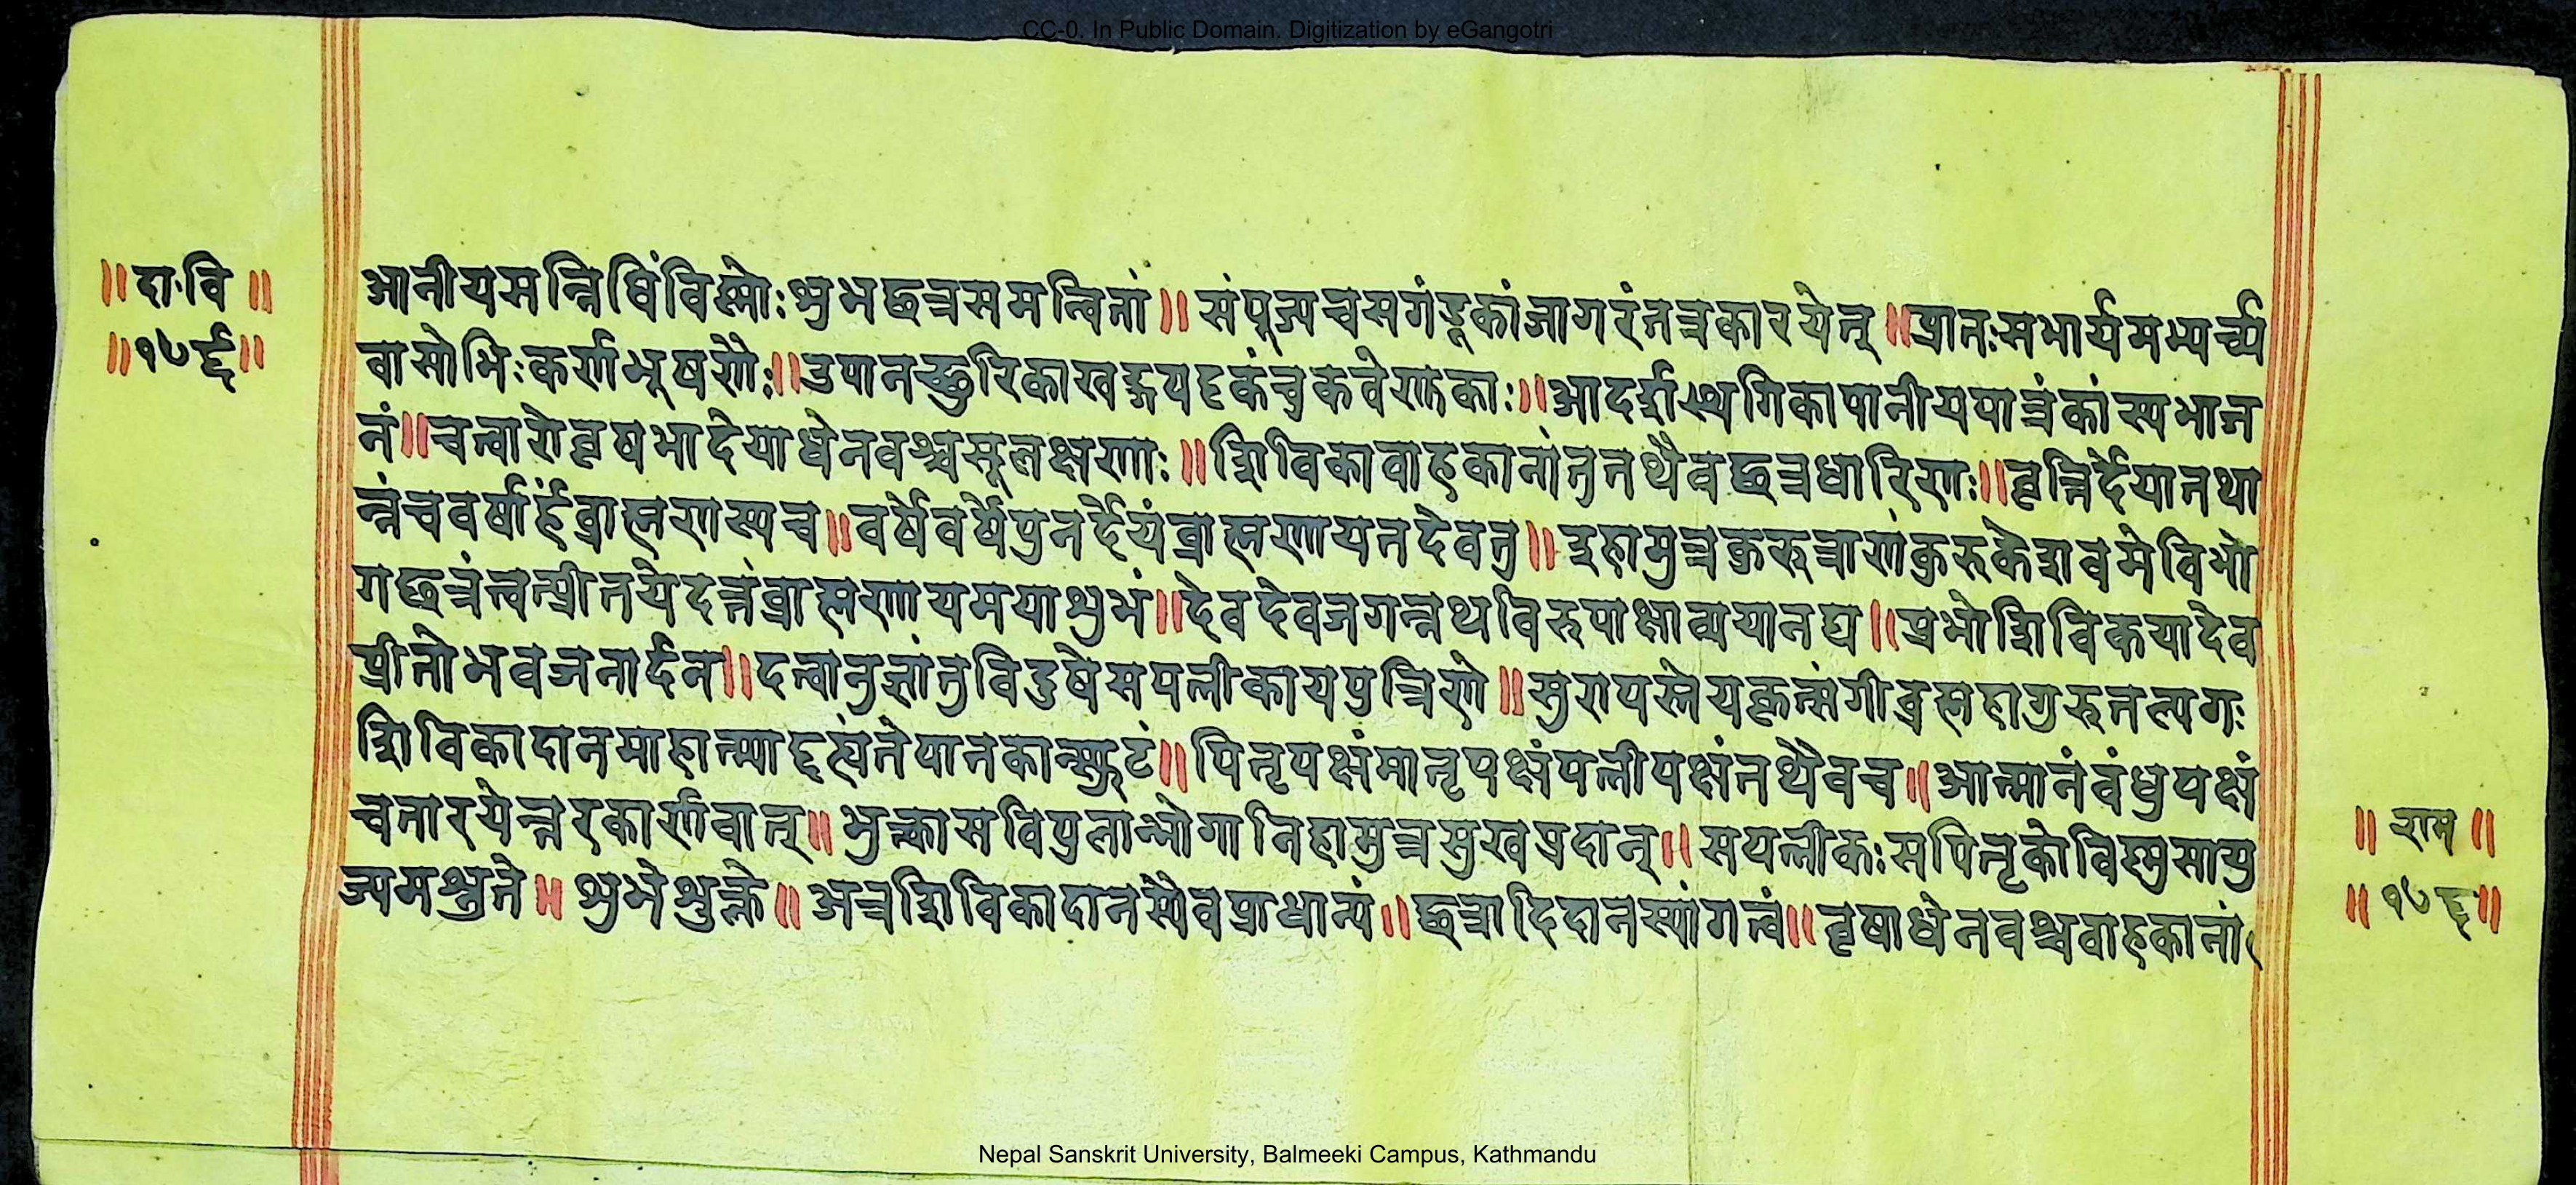 CC-0. In Public Domain. Digitization by eGangotri
॥ दा॰वि ॥
॥ १७६ ॥
आनीयसन्निधिंविष्णोःशुभछत्रसमन्वितां॥ संपूज्यचसगंडूकांजागरंतत्रकारयेत् ॥प्रातःसभार्यमभ्यर्च्य
वासोभिःकर्णभूषणैः॥उपानच्छुरिकाखड्गपट्टकंचुकवेणुकाः॥आदर्शस्थगिकापानीयपात्रंकांस्यभाज
नं॥चत्वारोवृषभादेयाधेनवश्चसूलक्षणाः॥शिविकावाहकानांतुतथैवछत्रधारिणः॥वृत्तिर्देयातथा
न्नंचवर्षार्हंब्राह्मणस्यच॥वर्षेवर्षेपुनर्देयंब्राह्मणायतदेवतु॥इहामुत्रकुरुत्राणंकुरुकेशवमेविभो
गछत्रंत्वत्प्रीतयेदत्तंब्राह्मणायमयाशुभं॥देवदेवजगन्नथविरुपाक्षाव्ययानघ॥प्रभोशिविकयादेव
प्रीतोभवजनार्दन॥दत्वानुज्ञांतुविदुषेसपत्नीकायपुत्रिणे॥सुरापस्तेयकृत्संगीब्रह्महागुरुतल्पगः
शिविकादानमाहात्म्याद्दह्यंतेपातकात्स्फुटं॥पितृपक्षंमातृपक्षंपत्नीपक्षंतथैवच॥आत्मानंबंधुपक्षं
चतारयेन्नरकार्णवात्॥भुक्त्कासविपुलान्भोगानिहामुत्रसुखप्रदान्॥सपत्नीकःसपितृकोविष्णुसायु
ज्यमश्नुते॥ शुभेशुक्ले॥अत्रशिविकादानस्यैवप्राधान्यं॥छत्रादिदानस्यांगत्वं॥वृषाधेनवश्चवाहकानां
॥ राम ॥
॥ १७६॥
Nepal Sanskrit University, Balmeeki Campus, Kathmandu